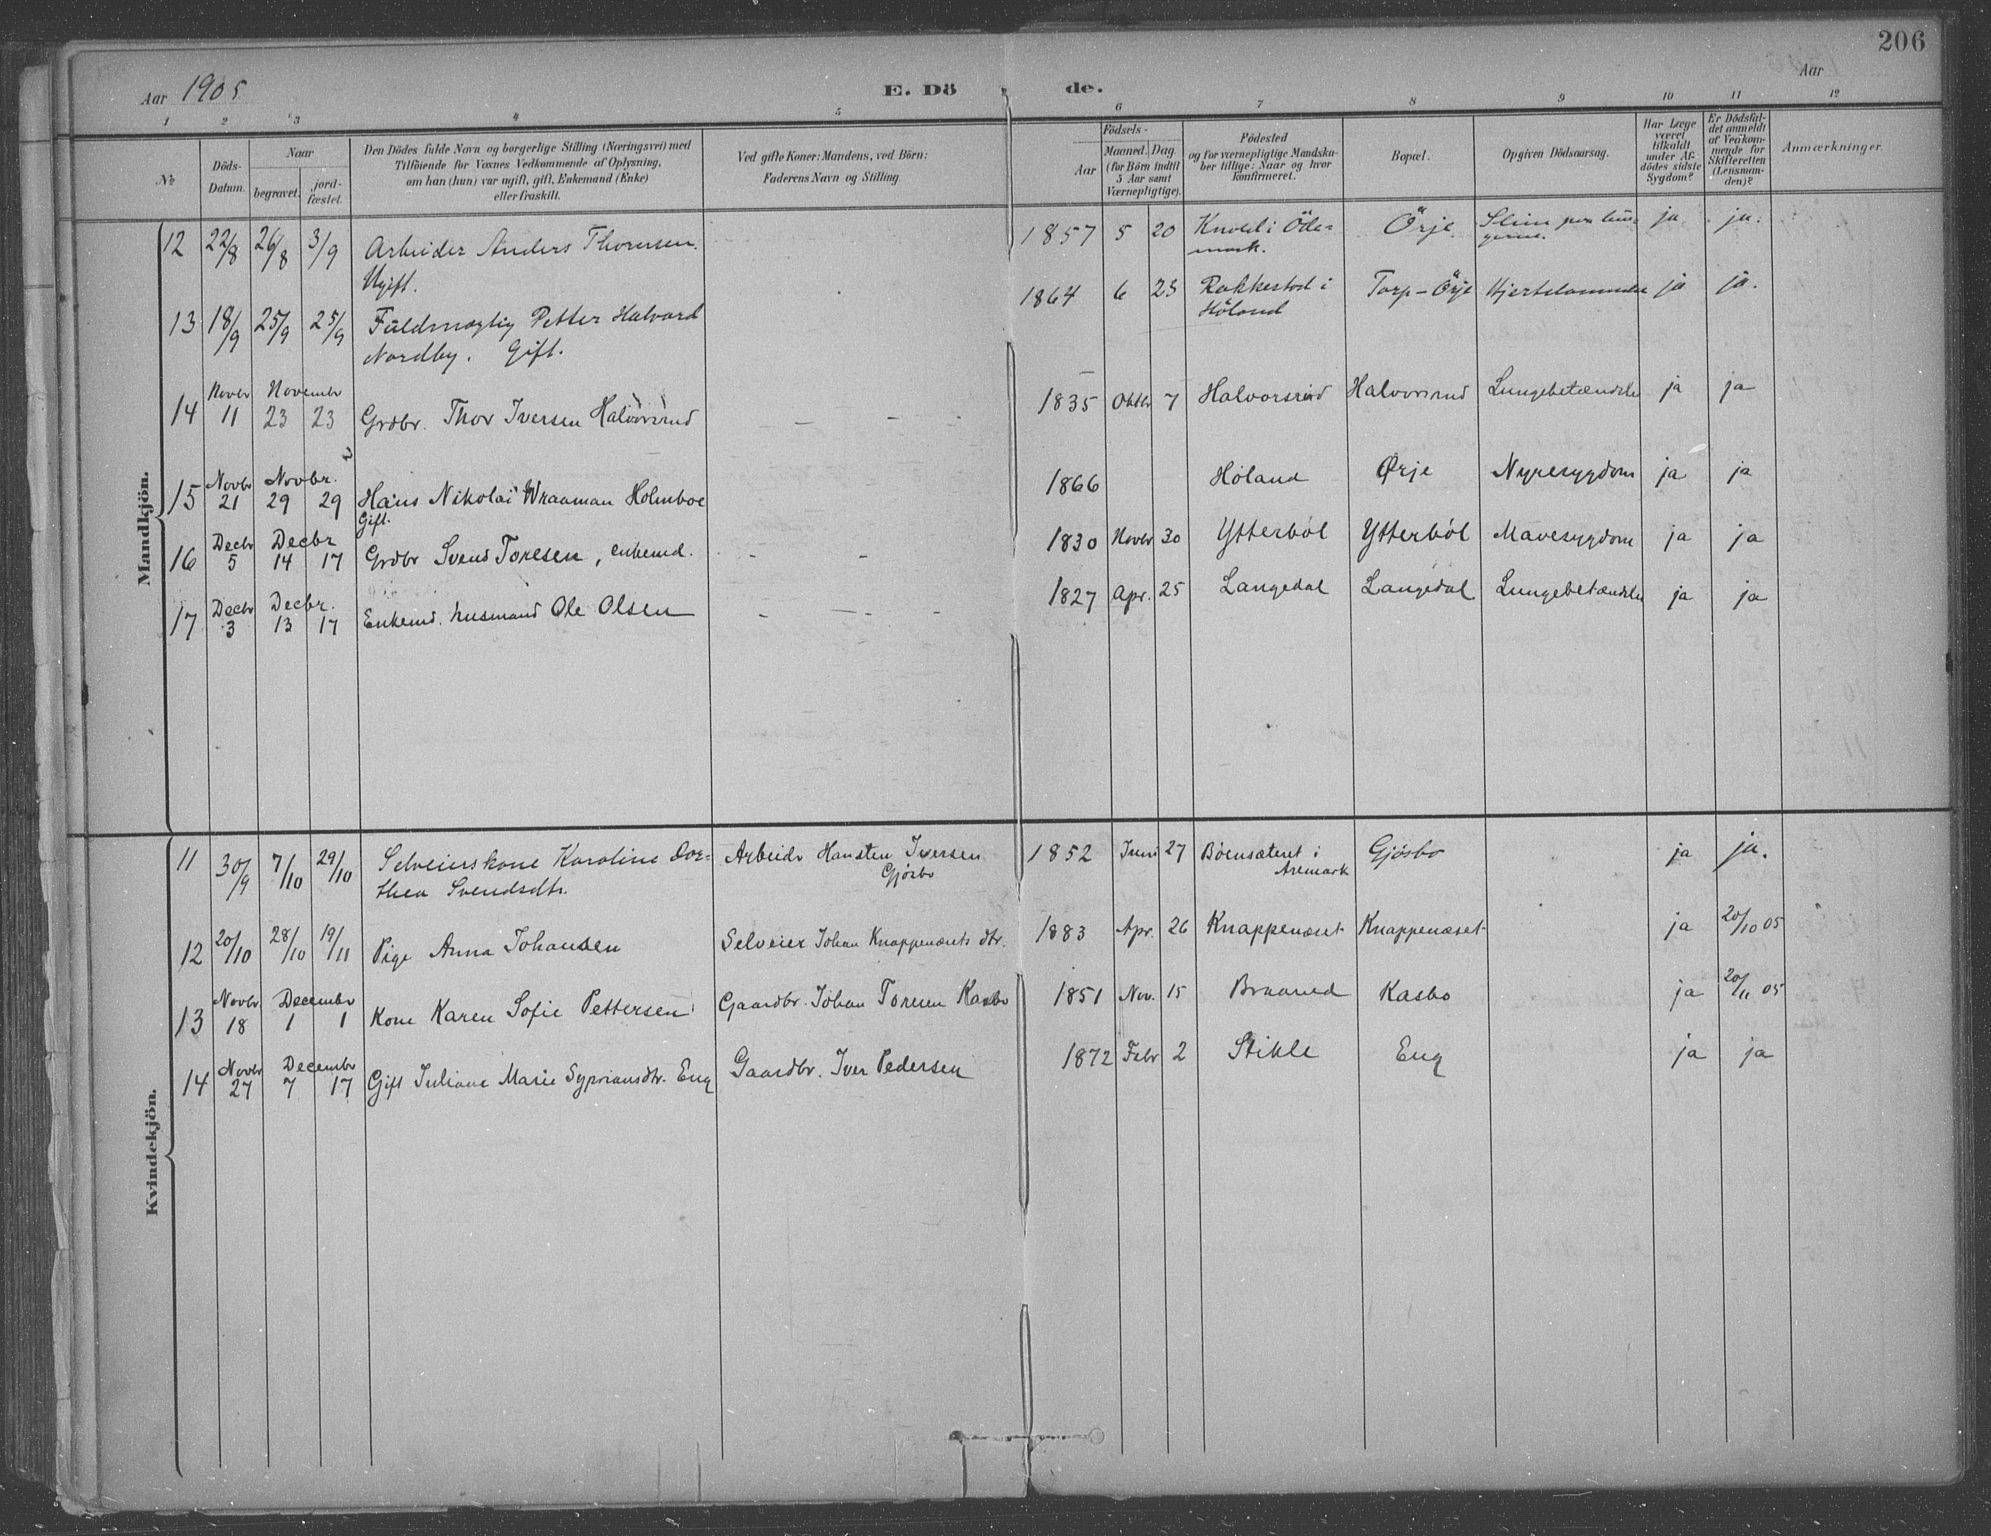 206
Aar 1905. E. Döde. Aar
1 2 3 4 5 6 7 8 9 10 11 12
No
Döds-Datum.
Naar
begravet. jord-fæstet.
Den Dödes fulde Navn og borgerlige Stilling (Næringsvei) med
Tilföiende for Voxnes Vedkommende af Oplysning,
om han (hun) var ugift, gift, Enkemand (Enke)
eller fraskilt.
Ved gifte Koner: Mandens, ved Börn:
Faderens Navn og Stilling.
Födsels-
Aar
Maaned. Dag
(for Börn indtil
5 Aar samt
Værnepligtige).
Födested
og for værnepligtige Mandska-
ber tillige: Naar og hvor
konfirmeret.
Bopæl.
Opgiven Dödsaarsag.
Har Læge
været
tilkaldt
under Af-
dödes sidste
Sygdom?
Er Dödsfal-
det anmeldt
af Vedkom-
mende for
Skifteretten
(Lensman-
den)?
Anmærkninger.
Mandkjön.
12 22/8 26/8 3/9 Arbeider Anders Thoresen. 1857 5 20 Krold i Öde- Örje. Slim paa lun- ja. ja.
Ugift. mark. gerne.
13 18/9 25/9 25/9 Fuldmægtig Petter Halvard 1864 6 23 Rakkestad i Torp - Örje Hjertelammelse ja ja.
Nordby. Gift. Höland
Novbr November
14 11 23 23 Grdbr. Thor Iversen Halvorsrud — — 1835 Oktbr 7 Halvorsrud Halvorsrud Lungebetændelse ja ja
Novbr Novbr.
15 21 29 29 Hans Nikolai Wraaman Holmboe 1866 Höland Ørje Nyresygdom ja ja
Gift.
Decbr Decbr
16 5 14 17 Grdbr Svend Toresen, enkemd. - - 1830 Novbr 30 Ytterböl Ytterböl Mavesygdom ja ja
Decbr Decbr.
17 3 13 17 Enkemd. husmand Ole Olsen - - 1827 Apr. 25 Langedal Langedal Lungebetændelse ja ja
Kvindekjön.
11 30/9 7/10 29/10 Selveierskone Karoline Dor- Arbeidr Hansten Iversen 1852 Juni 27 Böensæteret i Gjösbo ja ja.
thea Svendsdtr. Gjösbo Aremark
12 20/10 28/10 19/11 Pige Anna Johansen Selveier Johan Knappenæsets dtr. 1883 Apr. 26 Knappenæset Knappenæset ja 20/10 05
Novbr. December
13 18 1 1 Kone Karen Sofie Pettersen Gaardbr. Johan Toresen Kasbo 1851 Nov. 15 Braarud Kasbo ja 20/11 05
Novbr December
14 27 7 17 Gift Juliane Marie Syprians dtr. Eng Gaardbr. Iver Pedersen 1872 Febr 2 Stikle Eng ja ja